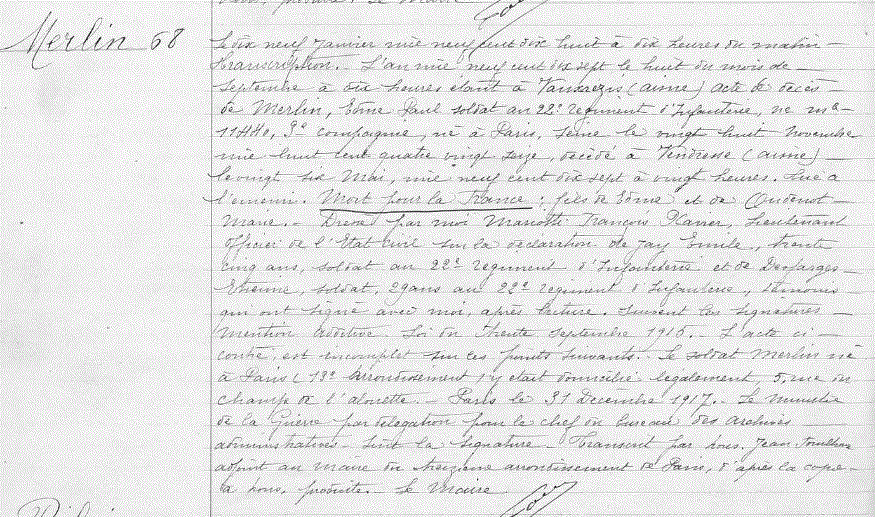 Merlin 68
Le dix neuf Janvier mil neuf cent dix huit à dix heures du matin —
Transcription. — L'an mil neuf cent dix sept le huit du mois de —
Septembre à dix heures étant à (aisne) acte de décès —
de Merlin, Edme Paul soldat au 22e regiment d'Infanterie, ne ma —
11440, 9e compagnie, né à Paris, Seine le vingt huit novembre
mil huit cent quatre vingt seize, décédé à Vendresse (aisne) —
le vingt six Mai, mil neuf cent dix sept à vingt heures. Tué à
l'ennemi. Mort pour la France : fils de Edme et de
Marie. — Dressé par moi Mariotti François Xavier, Lieutenant
officier de l'Etat civil sur la déclaration de Jay Emile, trente
cinq ans, soldat au 22e regiment d'Infanterie et de Desfarges —
Etienne, soldat, 29 ans au 22e regiment d'Infanterie, témoins
qui ont signé avec moi, après lecture. Suivent les signatures —
Mention additive. Loi du trente septembre 1915. — L'acte ci —
contre, est incomplet sur ces points suivants. Le soldat Merlin né
à Paris (13e arrondissement) y était domicilié légalement, 5, rue du
champ de l'alouette. — Paris le 31 Décembre 1917. — Le Ministre
de la Guerre par délégation pour le chef du bureau des archives —
administratives — suit la signature — Transcrit par nous, Jean
adjoint au maire du treizième arrondissement de Paris, d'après la copie —
à nous, produite. — Le Maire